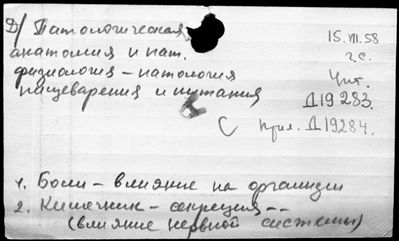 Д/ Патологическая
анатомия и пат.
физиология – патология
пищеварения и питания
15.VII.58
г.с.
Цит.
Д19283.
С прил. Д19284.
1. Боли – влияние на организм
2. Кишечник – секреция --
(влияние нервной системы)